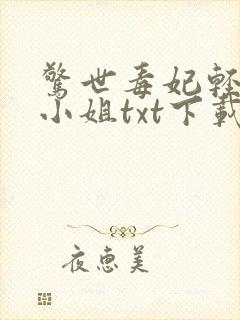 驚世毒妃輕
小姐txt下載
夜惠美